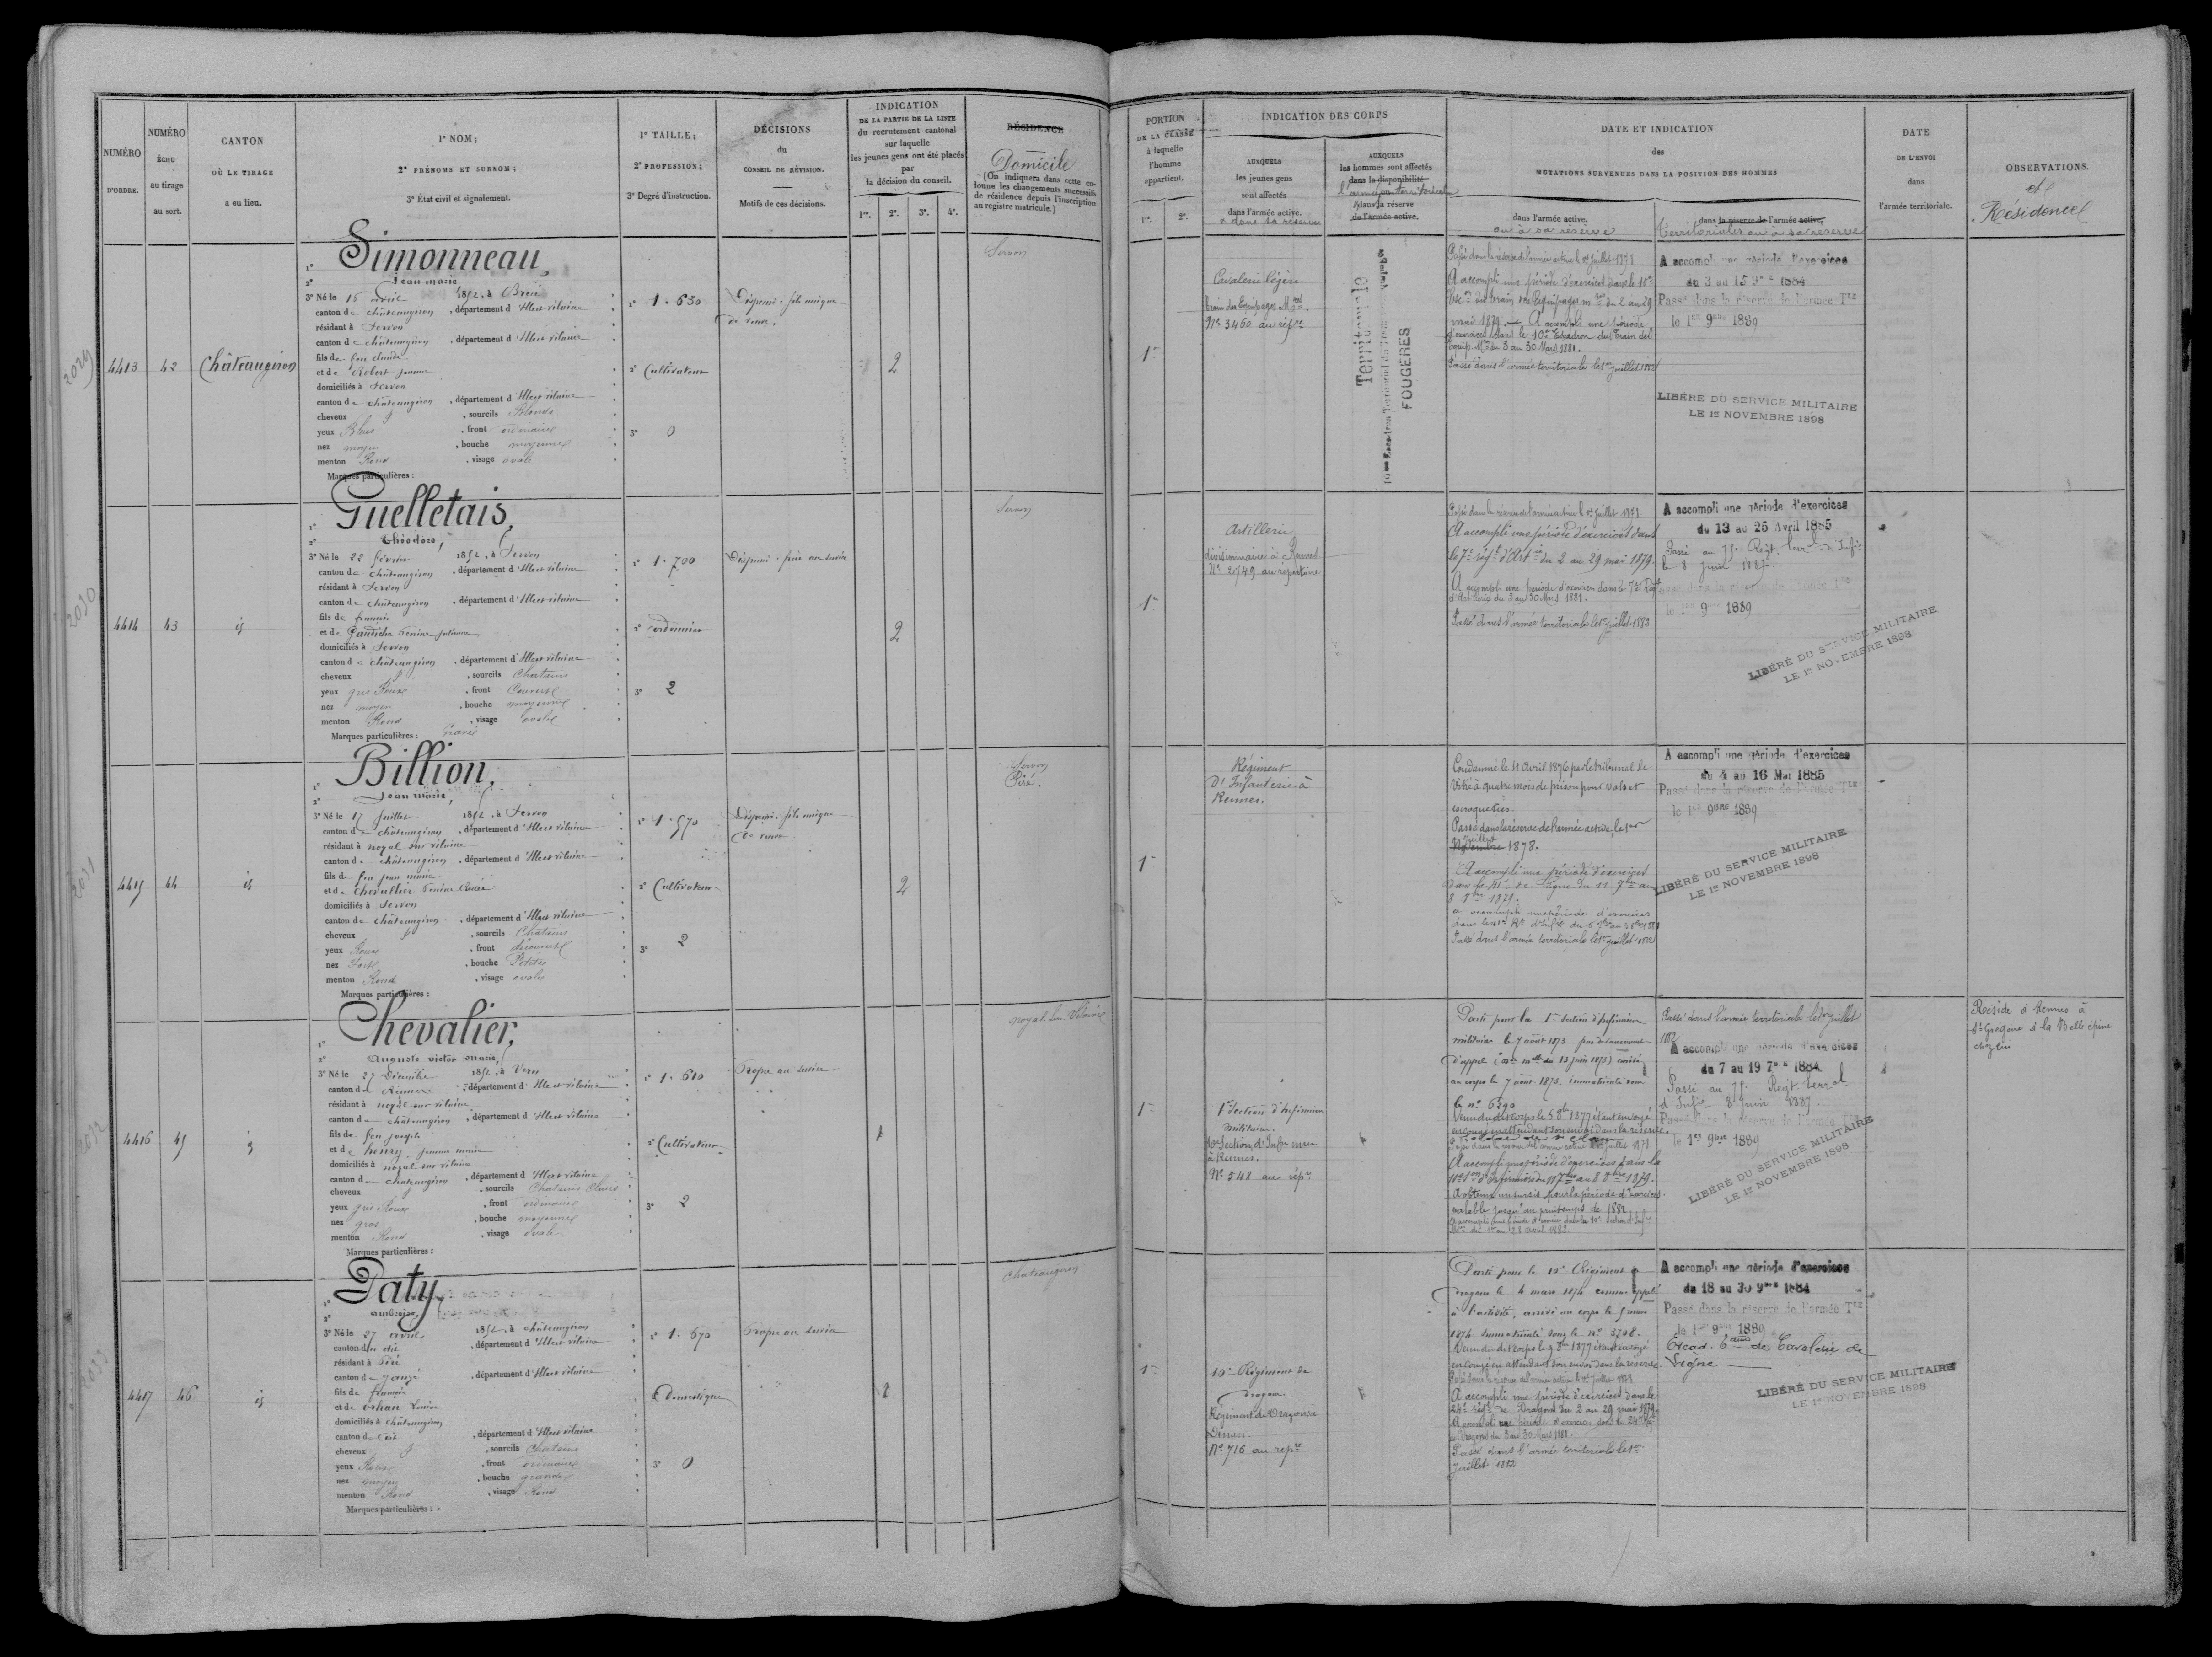 NUMÉRO
D'ORDRE.
NUMÉRO
ÉCHU
au tirage
au sort.
CANTON
OÙ LE TIRAGE
a eu lieu.
1° NOM;
2° PRÉNOMS ET SURNOM;
3° État civil et signalement.
1° TAILLE;
2° PROFESSION;
3° Degré d'instruction.
DÉCISIONS
du
CONSEIL DE RÉVISION.
Motifs de ces décisions.
INDICATION
DE LA PARTIE DE LA LISTE
du recrutement cantonal
sur laquelle
les jeunes gens ont été placés
par
la décision du conseil.
1re. 2e. 3e. 4e.
RÉSIDENCE
Domicile
(On indiquera dans cette co-
lonne les changements successifs
de résidence depuis l'inscription
au registre matricule.)
PORTION
DE LA CLASSE
à laquelle
l'homme
appartient.
1re. 2e.
INDICATION DES CORPS
AUXQUELS
les jeunes gens
sont affectés
dans l'armée active.
ou dans sa réserve
AUXQUELS
les hommes sont affectés
dans la disponibilité
dans la réserve
de l'armée active.
DATE ET INDICATION
des
MUTATIONS SURVENUES DANS LA POSITION DES HOMMES
dans l'armée active.
ou à sa réserve
dans la réserve de l'armée active,
Territoriale ou à sa réserve
DATE
DE L'ENVOI
dans
l'armée territoriale.
OBSERVATIONS.
et
Résidence
2029
4413
42
Châteaugiron
1° Simonneau,
2° Jean marie
3° Né le 15 avril 1852, à Brécé
canton de châteaugiron, département d'Ille et vilaine
résidant à Servon
canton de châteaugiron, département d'Ille et vilaine
fils de feu
et de Robert jeanne
domiciliés à Servon
canton de châteaugiron, département d'Ille et vilaine
cheveux, sourcils Blonds
yeux Bleus, front ordinaire
nez moyen, bouche moyenne
menton Rond, visage ovale
Marques particulières :
1° 1.630
2° Cultivateur
3° 0
Dispensé. fils unique
de veuve.
2
Servon
1re
Cavalerie légère
train des Equipages Mres
No 3460 au répre
Territoriale
FOUGÈRES
Passé dans la réserve de l'armée active le 1er juillet 1878
A accompli une période d'exercices dans le 10e
Escon du train des Equipages mres du 2 au 29
mai 1879. — A accompli une période
d'exercices dans le 10e Escadron du Train des
Equip. Mres du 3 au 30 Mars 1881.
Passé dans l'armée territoriale le 1er juillet 1882
A accompli une période d'exercices
du 3 au 15 9bre 1884
Passé dans la réserve de l'armée Tle
le 1er 9bre 1889
LIBÉRÉ DU SERVICE MILITAIRE
LE 1er NOVEMBRE 1898
2030
4414
43
id
1° Guelletais,
2° théodore,
3° Né le 22 février 1852, à Servon
canton de châteaugiron, département d'Ille et vilaine
résidant à Servon
canton de châteaugiron, département d'Ille et vilaine
fils de françois
et de Gaudiche
domiciliés à Servon
canton de châteaugiron, département d'Ille et vilaine
cheveux, sourcils Chatains
yeux gris Roux, front Couvert
nez moyen, bouche moyenne
menton Rond, visage ovale
Marques particulières : Gravé
1° 1.700
2° cordonnier
3° 2
Dispensé. frère au service
2
Servon
1re
Artillerie
divisionnaire à Rennes
No 2749 au répertoire
Passé dans la réserve de l'armée active le 1er juillet 1878
A accompli une période d'exercices dans
le 7e régt d'Artie du 2 au 29 mai 1879.
A accompli une période d'exercices dans le 7e Régt
d'Artillerie du 3 au 30 Mars 1881.
Passé dans l'armée territoriale le 1er juillet 1883
A accompli une période d'exercices
du 13 au 25 Avril 1885
Passé au 75e Régt terral d'Infie
le 8 juin 1887.
Passé dans la réserve de l'armée Tle
le 1er 9bre 1889
LIBÉRÉ DU SERVICE MILITAIRE
LE 1er NOVEMBRE 1898
2031
4415
44
id
1° Billion,
2° Jean marie,
3° Né le 17 Juillet 1852, à Servon
canton de châteaugiron, département d'Ille et vilaine
résidant à noyal sur vilaine
canton de châteaugiron, département d'Ille et vilaine
fils de feu jean marie
et de Chevallier
domiciliés à Servon
canton de châteaugiron, département d'Ille et vilaine
cheveux, sourcils Chatains
yeux Roux, front découvert
nez Fort, bouche Petite
menton Rond, visage ovale
Marques particulières :
1° 1.570
2° Cultivateur
3° 2
Dispensé. fils unique
de veuve.
2
Servon
Piré.
1re
Régiment
d'Infanterie à
Rennes.
Condamné le 11 Avril 1876 par le tribunal de
Vitré à quatre mois de prison pour vols et
escroqueries.
Passé dans la réserve de l'armée active, le 1er
Juillet
Novembre 1878.
A accompli une période d'exercices
dans le 41e de Ligne du 11 7bre au
8 8bre 1879.
A accompli une période d'exercices
Passé dans l'armée territoriale le 1er juillet 1882
A accompli une période d'exercices
du 4 au 16 Mai 1885
Passé dans la réserve de l'armée Tle
le 1er 9BRE 1889
LIBÉRÉ DU SERVICE MILITAIRE
LE 1er NOVEMBRE 1898
2032
4416
45
id
1° Chevalier,
2° Auguste victor marie,
3° Né le 27 Décembre 1852, à Vern
canton de Rennes, département d'Ille et vilaine
résidant à noyal sur vilaine
canton de châteaugiron, département d'Ille et vilaine
fils de feu joseph
et de henry jeanne marie
domiciliés à noyal sur vilaine
canton de châteaugiron, département d'Ille et vilaine
cheveux, sourcils Chatains Clairs
yeux gris Roux, front ordinaire
nez gros, bouche moyenne
menton Rond, visage ovale
Marques particulières :
1° 1.610
2° Cultivateur
3° 2
Propre au service
1
noyal sur Vilaine
1re
1re Section d'Infirmiers
militaires.
10e Section d'Infirs mres
à Rennes.
No 548 au répre
Parti pour la 1re section d'infirmiers
militaires le 7 août 1873 par devancement
d'appel arrivé
au corps le 7 août 1873. immatriculé sous
le no 6290
Venu dudit corps le 5 8bre 1877 étant envoyé
en congé en attendant son envoi dans la réserve.
A accompli une période d'exercices dans la
10e Son d'Infirmiers du 11 7bre au 8 8bre 1879.
A obtenu un sursis pour la période d'exercices
valable jusqu'au printemps de 1882.
Passé dans l'armée territoriale le 1er juillet
1882
A accompli une période d'exercices
du 7 au 19 7bre 1884
Passé au 75e Régt terral
d'Infie 8 juin 1887
Passé dans la réserve de l'armée Tle
le 1er 9bre 1889
LIBÉRÉ DU SERVICE MILITAIRE
LE 1er NOVEMBRE 1898
Réside à Rennes à
St Grégoire à la Belle épine
chez lui
2033
4417
46
id
1° Paty,
2° ambroise,
3° Né le 27 avril 1852, à châteaugiron
canton du dit, département d'Ille et vilaine
résidant à Piré
canton de janzé, département d'Ille et vilaine
fils de françois
et de orhan Louise
domiciliés à châteaugiron
canton de dit, département d'Ille et vilaine
cheveux, sourcils Chatains
yeux Roux, front ordinaire
nez moyen, bouche grande
menton Rond, visage Rond
Marques particulières :
1° 1.670
2° Domestique
3° 0
Propre au service
1
Chateaugiron
1re
10e Régiment de
dragons.
Régiment de Dragons à
Dinan.
No 716 au répre
Parti pour le 10e Régiment de
dragons le 4 mars 1874 comme appelé
à l'activité, arrivé au corps le 5 mars
1874 immatriculé sous le no 3708.
Venu dudit corps le 9 8bre 1877 étant envoyé
en congé en attendant son envoi dans la réserve.
Passé dans la réserve de l'armée active le 1er juillet 1878
A accompli une période d'exercices dans le
24e régt de Dragons du 2 au 29 mai 1879.
A accompli une période d'exercices dans le 24e Régt
de Dragons du 3 au 30 Mars 1881.
Passé dans l'armée territoriale le 1er
Juillet 1882
A accompli une période d'exercices
du 18 au 30 9bre 1884
Passé dans la réserve de l'armée Tle
le 1er 9bre 1889
Escad. 6ème de Cavalerie de
Ligne
LIBÉRÉ DU SERVICE MILITAIRE
LE 1er NOVEMBRE 1898